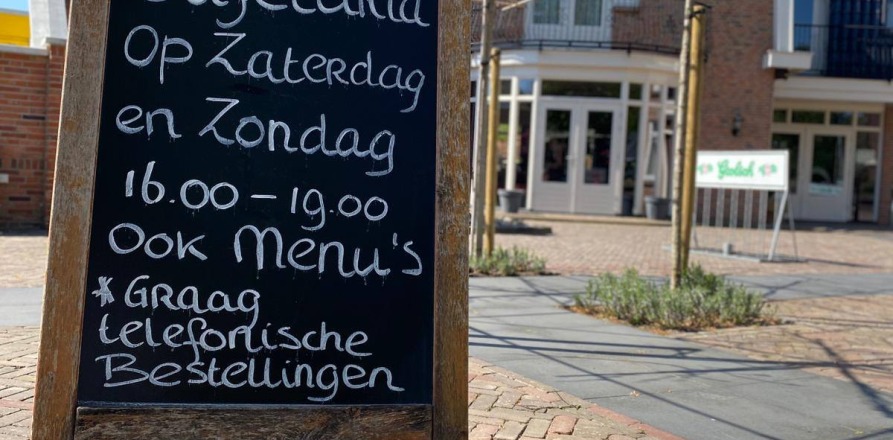 Op Zaterdag
en Zondag
16.00 - 19.00
Ook Menu's
* Graag
telefonische
Bestellingen
Grolsch